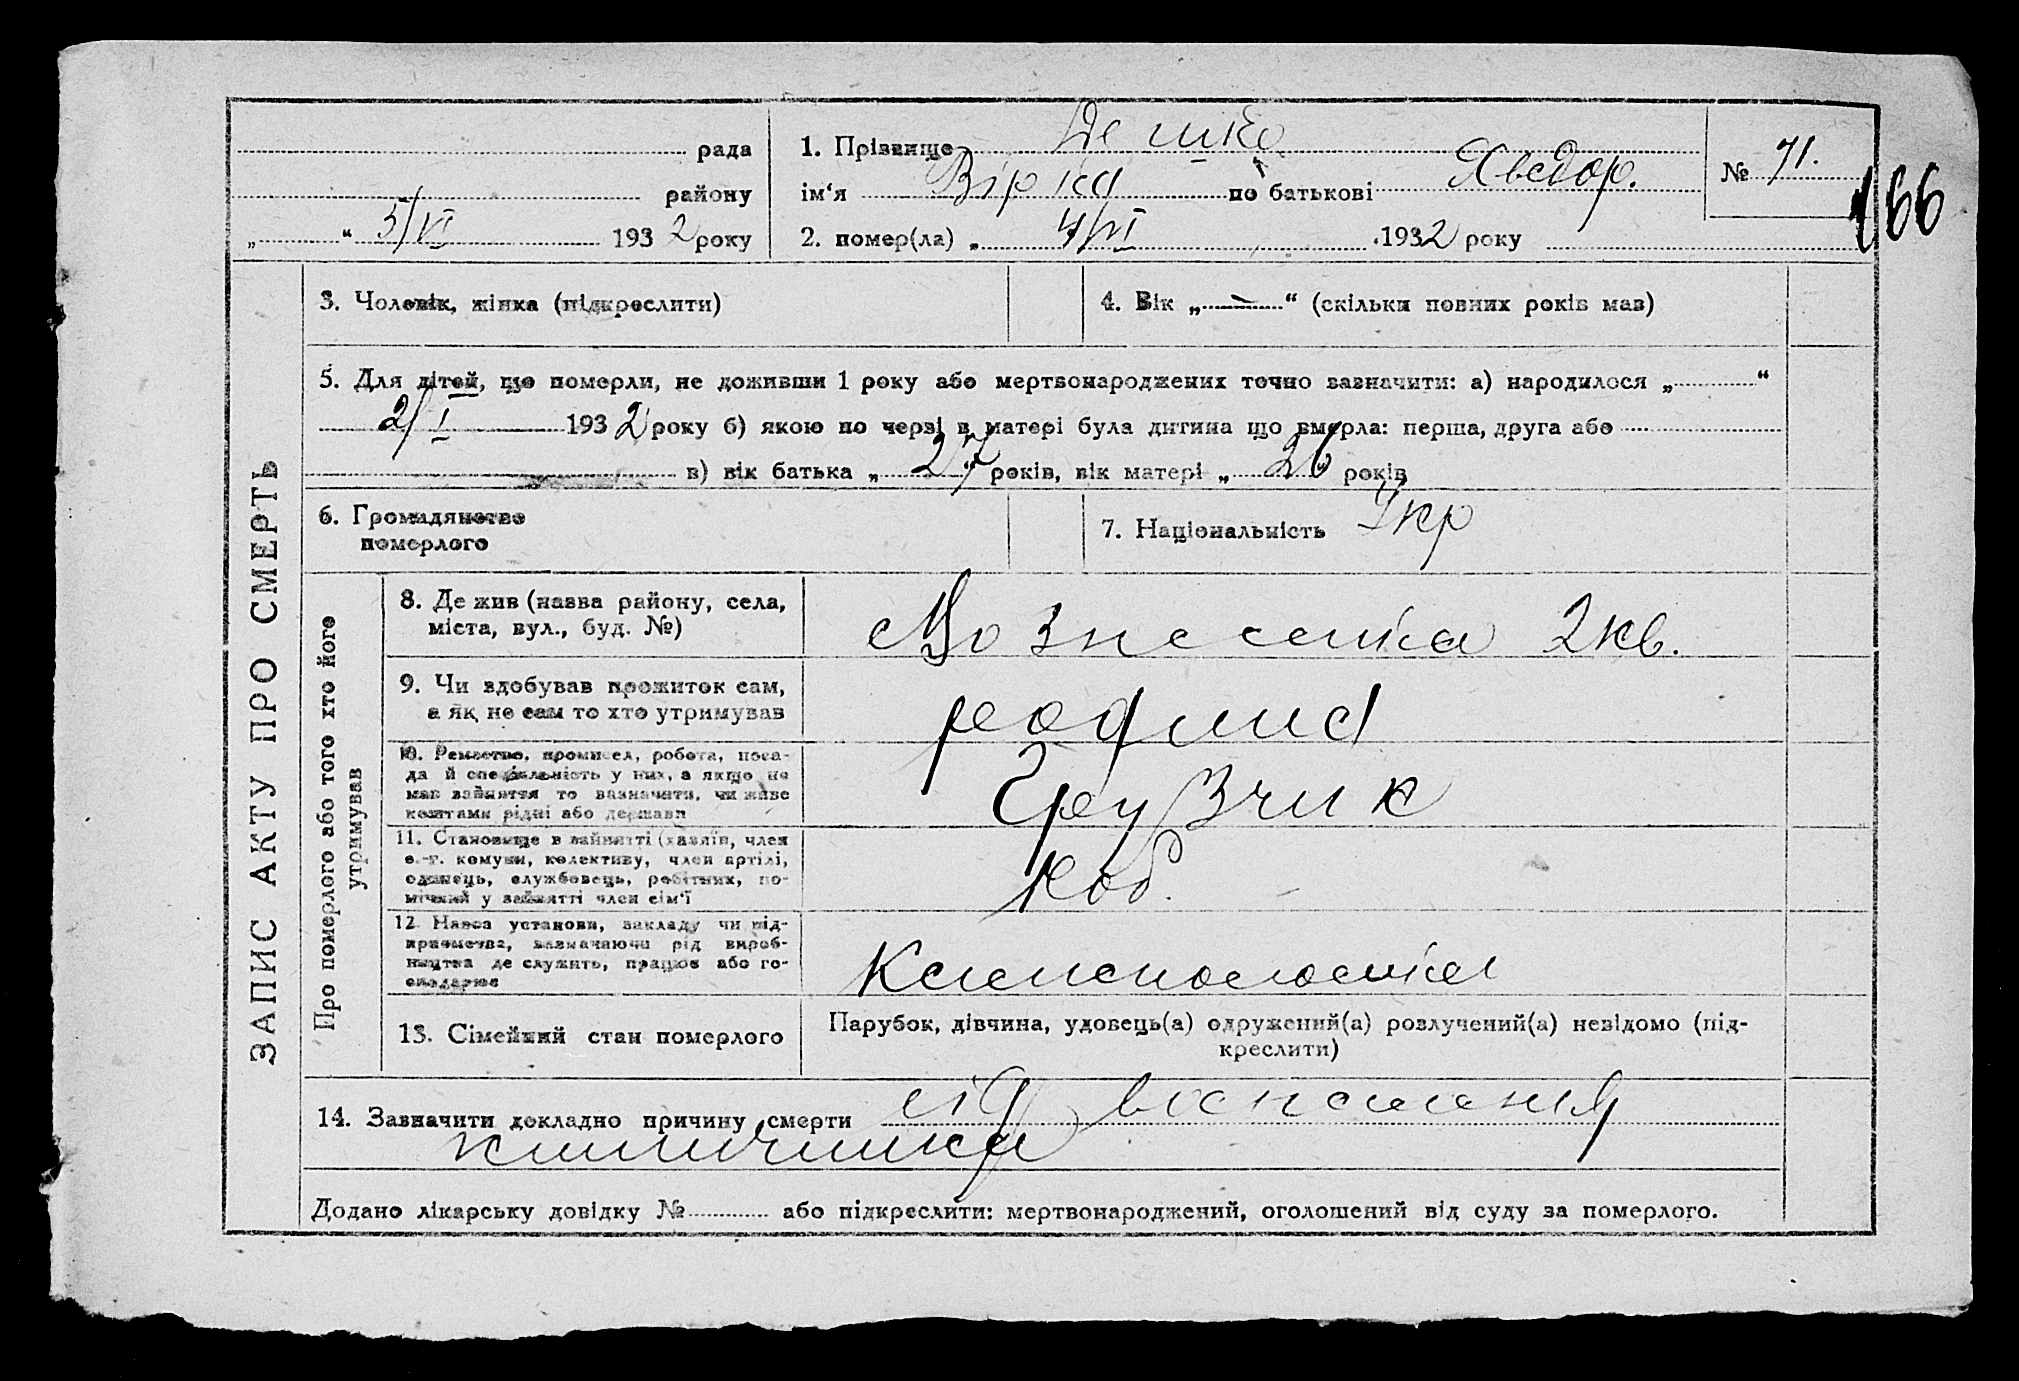 рада
району
„ “ 5/VI 1932 року
1. Прізвище Дешко
ім‘я Вірка по батькові Хведор.
2. помер(ла) „ 4/VI .1932 року
№ 71.
166
ЗАПИС АКТУ ПРО СМЕРТЬ
3. Чоловік, жінка (підкреслити)
4. Вік „ — “ (скільки повних років мав)
5. Для дітей, що померли, не доживши 1 року або мертвонароджених точно зазначити: а) народилося „ “
2/I 1932 року б) якою по черзі в матері була дитина що вмерла: перша, друга або
в) вік батька „ 27 років, вік матері „ 26 років
6. Громадянство
померлого
7. Національність Укр
Про померлого або того хто його
утримував
8. Де жив (назва району, села,
міста, вул., буд. №)
Вознесенка 2кв.
9. Чи здобував прожиток сам,
а як не сам то хто утримував
родина
10. Ремество, промисел, робота, поса-
да й спеціальність у них, а якщо не
мав зайняття то зазначити, чи живе
коштами рідні або держави
Грузчик
11. Становище в зайнятті (хазяїн, член
с.-г. комуни, колективу, член артілі,
одинець, службовець, робітник, по-
мічний у зайнятті член сім‘ї
Роб.
12. Назва установи, закладу чи під-
приємства, зазначаючи рід вироб-
ництва де служить, працює або го-
сподарює
13. Сімейний стан померлого
Парубок, дівчина, удовець(а) одружений(а) розлучений(а) невідомо (під-
креслити)
14. Зазначити докладно причину смерти від воспаления
кишечника
Додано лікарську довідку № або підкреслити: мертвонароджений, оголошений від суду за померлого.